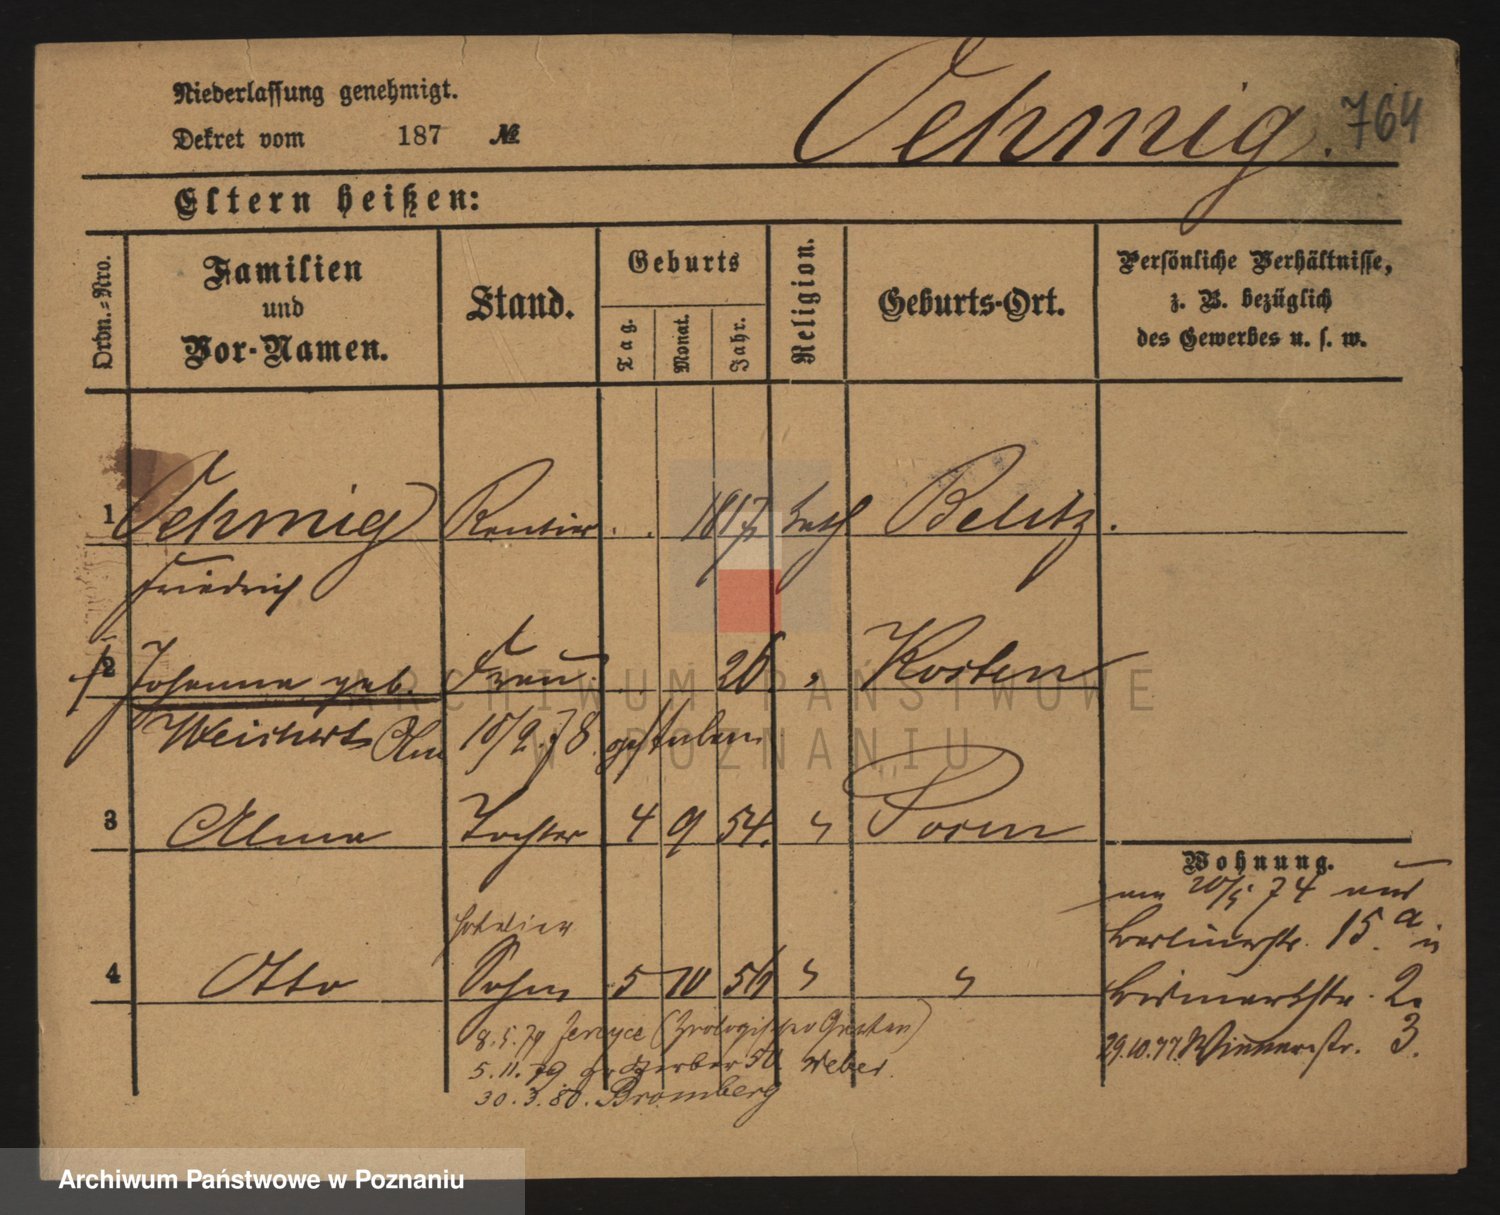 Niederlassung genehmigt.
Dekret vom 187 №
Oehmig. 764
Eltern heißen:
Ordn.-Nro.
Familien
und
Vor-Namen.
Stand.
Geburts
Tag.
Monat.
Jahr.
Religion.
Geburts-Ort.
Persönliche Verhältnisse,
z. B. bezüglich
des Gewerbes u. s. w.
1 Oehmig Rentier . . 1817 kath Belitz.
Friedrich
† 2 Johanna geb. Frau. 26. " Kosten
Weichert 18/9.78 gestorben
3 Alma Tochter 4 9 54. " Posen
Wohnung.
am 20/5 74 aus
Berlinerstr. 15.a in
Hotelier
4 Otto Sohn 5 10 56 " "
Bismarkstr. 2.
8.5.79 Jersyce (Zoologischer Garten)
29.10.77. Wienerstr. 3.
5.11.79 Gr Gerber 50. Weber.
30.3.80. Bromberg
ARCHIWUM PAŃSTWOWE
W POZNANIU
Archiwum Państwowe w Poznaniu